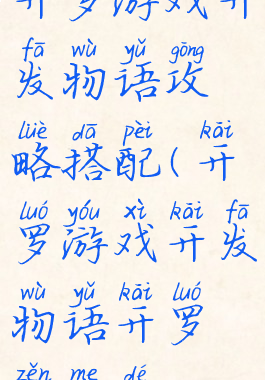 开罗游戏开
fā wù yǔ gōng
发物语攻
lüè dā pèi kāi
略搭配(开
luó yóu xì kāi fā
罗游戏开发
wù yǔ kāi luó
物语开罗
zěn me dé